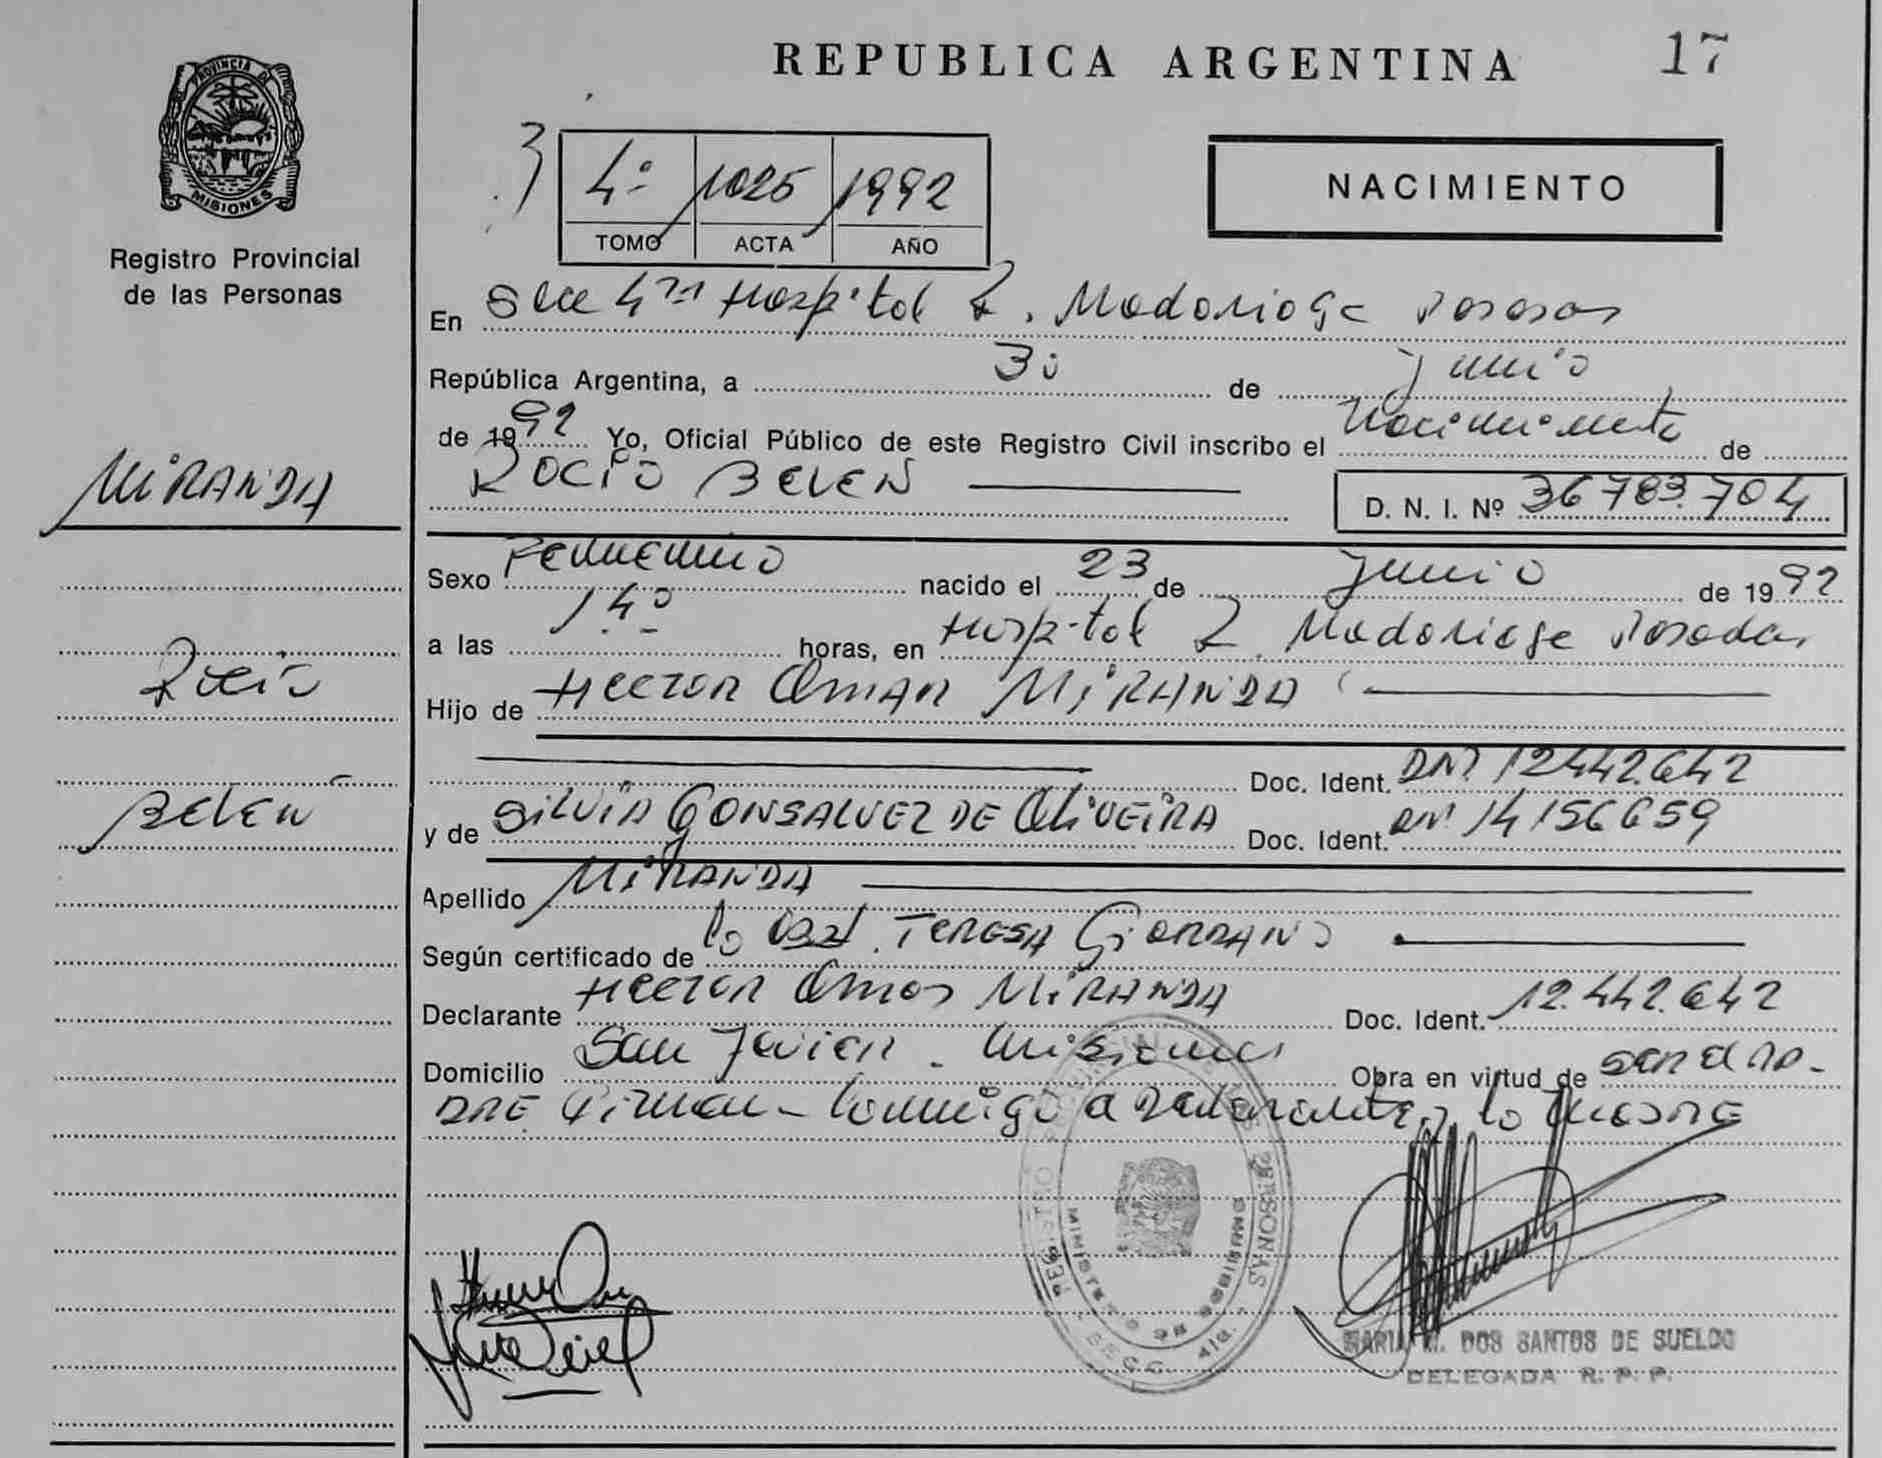 REPUBLICA ARGENTINA 17
PROVINCIA DE
MISIONES
Registro Provincial
de las Personas
4º 1025 1992
TOMO ACTA AÑO
NACIMIENTO
En Secc 4ta Hospital R. Madariaga Posadas
República Argentina, a 30 de Junio
de 1992 Yo, Oficial Público de este Registro Civil inscribo el Nacimiento de
ROCIO BELEN D. N. I. Nº 36783.704
MIRANDA
Sexo Femenino nacido el 23 de Junio de 1992
a las 14º horas, en Hospital R. Madariaga Posadas
Rocio
Hijo de HECTOR OMAR MIRANDA
Doc. Ident. DNI 12442.642
BELEN
y de SILVIA GONSALVEZ DE OLIVEIRA Doc. Ident. DNI 14156659
Apellido MIRANDA
Según certificado de la Obst. TERESA GIORDANO
Declarante HECTOR Omar MIRANDA Doc. Ident. 12.442.642
Domicilio San Javier - Misiones Obra en virtud de SER EL PA-
DRE Firman conmigo el declarante y la MADRE
REGISTRO PROVINCIAL DE LAS PERSONAS
MINISTERIO DE GOBIERNO
SECC. 4ta.
MARIA DOS SANTOS DE SUELDO
DELEGADA R. P. P.